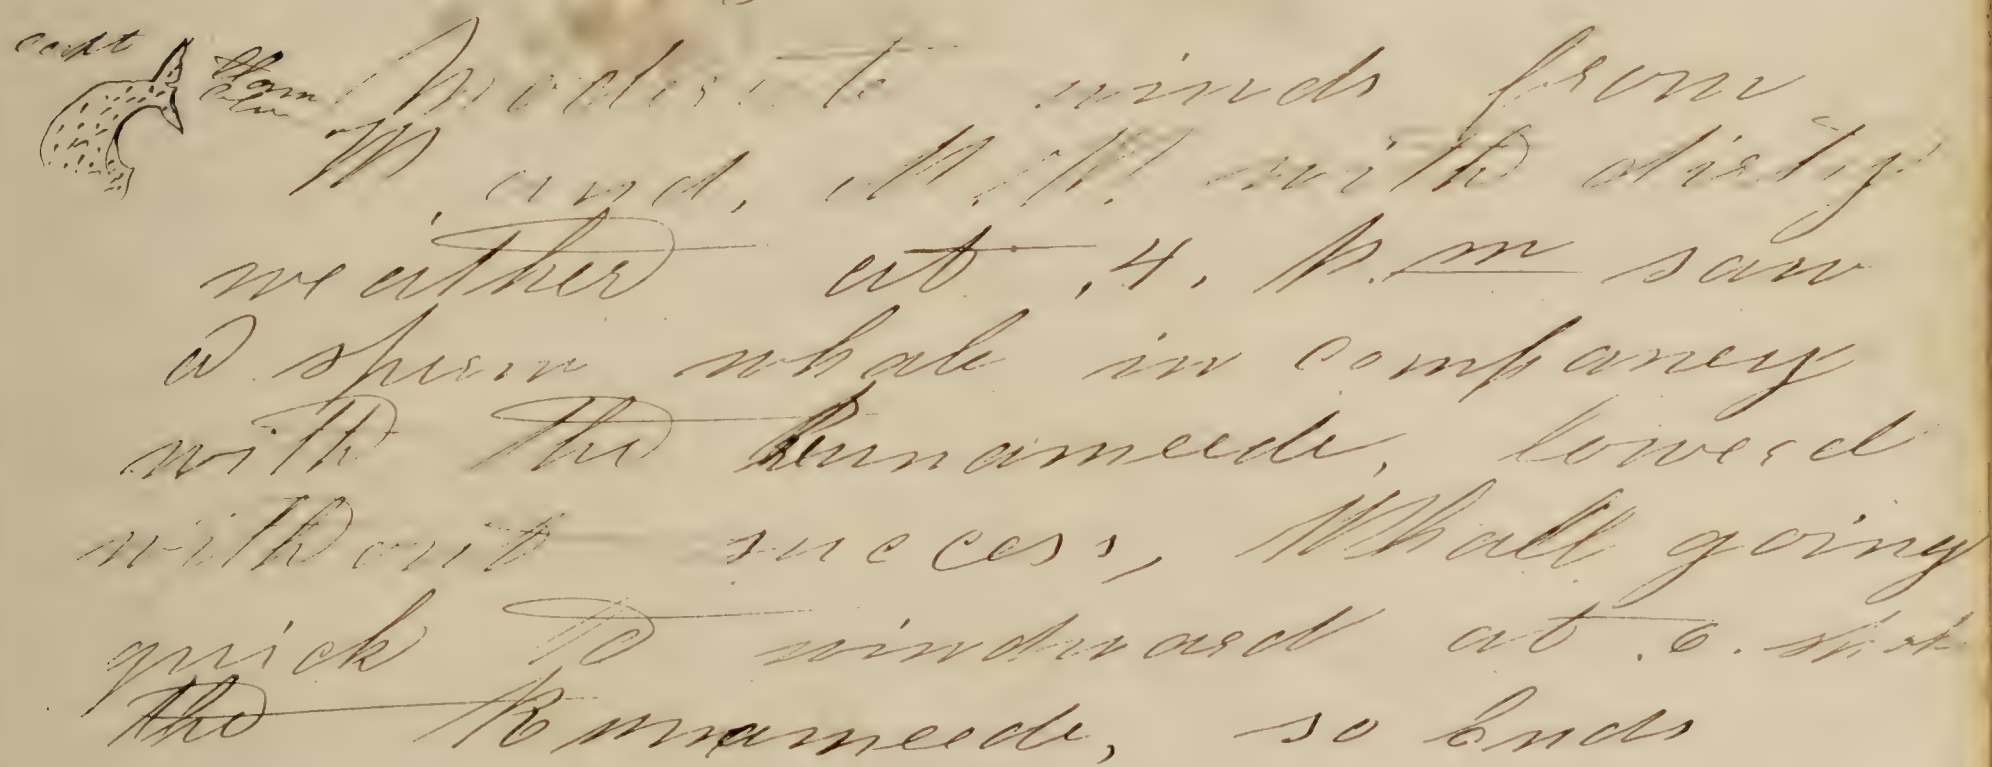 Moderate winds from
W. and, W.N.W. with dirty
weather at .4. P.m saw
a sperm whale in companey
with the Runameede, lowerd
without success, Whale going
quick to windward at .6. spok
the Runnameede, so Ends